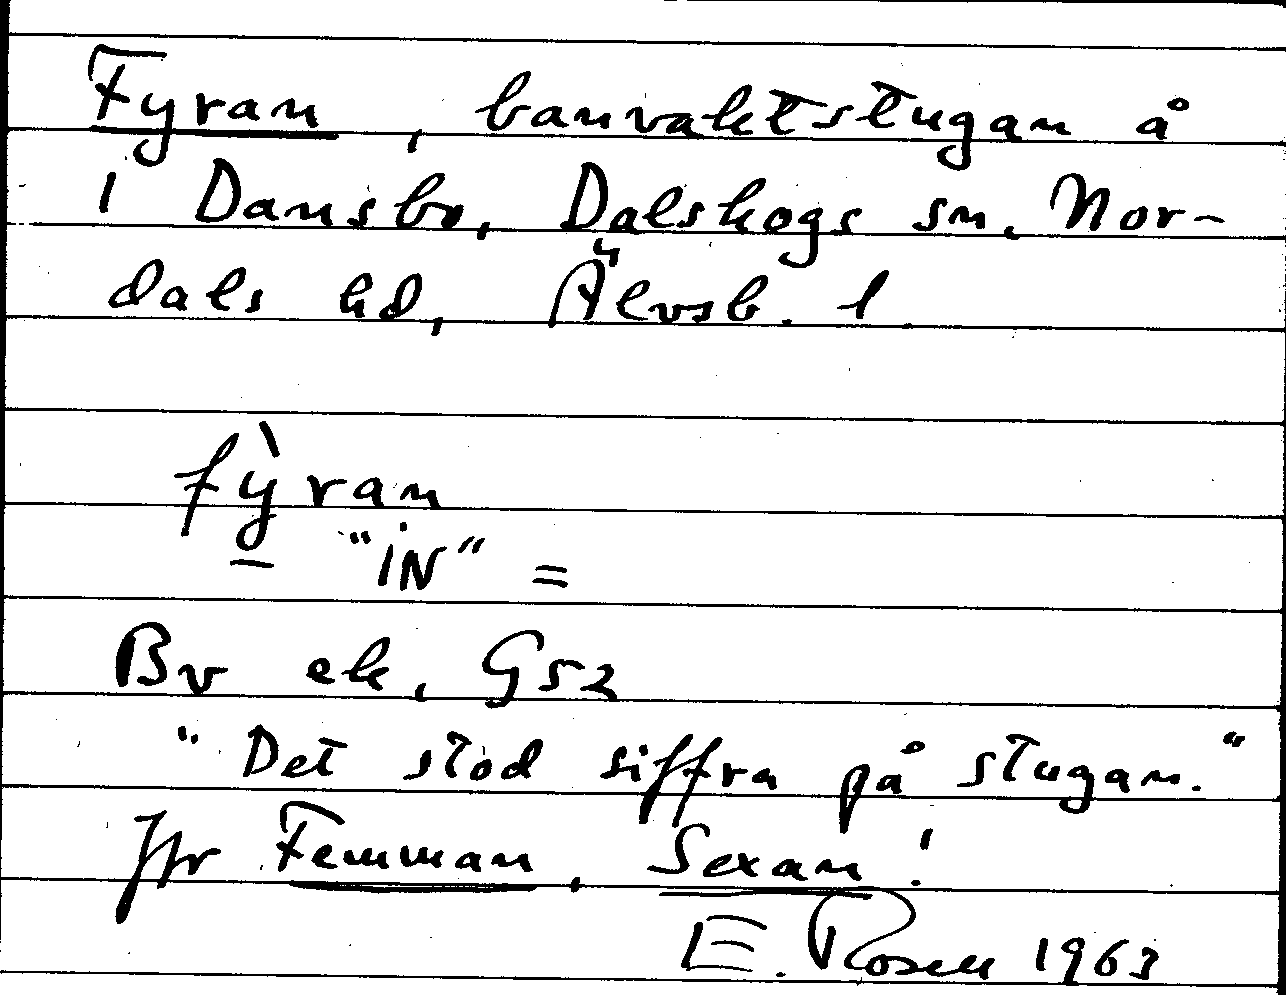 Fyran, banvaktstugan å
1 Dansbo, Dalskogs sn, Nor-
dals hd, Älvsb. l
fỳran
"iN" =
Bv ek. G52
"Det stod siffra på stugan."
Jfr Femman, Sexan!
E. Rosell 1963